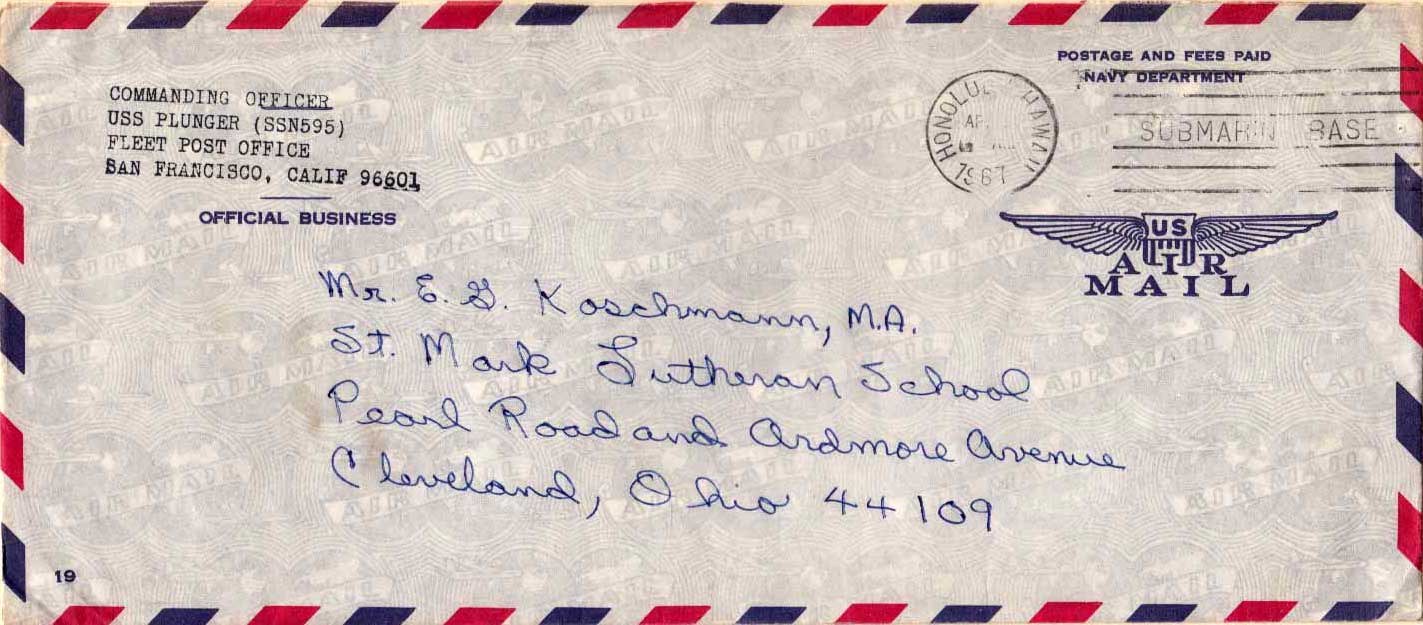 COMMANDING OFFICER
USS PLUNGER (SSN595)
FLEET POST OFFICE
SAN FRANCISCO, CALIF 96601
OFFICIAL BUSINESS
POSTAGE AND FEES PAID
NAVY DEPARTMENT
HONOLU HAWAII
AP
1967
SUBMARIN BASE
US
AIR
MAIL
Mr. E. G. Koschmann, M.A.
St. Mark Lutheran School
Pearl Road and Ardmore Avenue
Cleveland, Ohio 44109
19